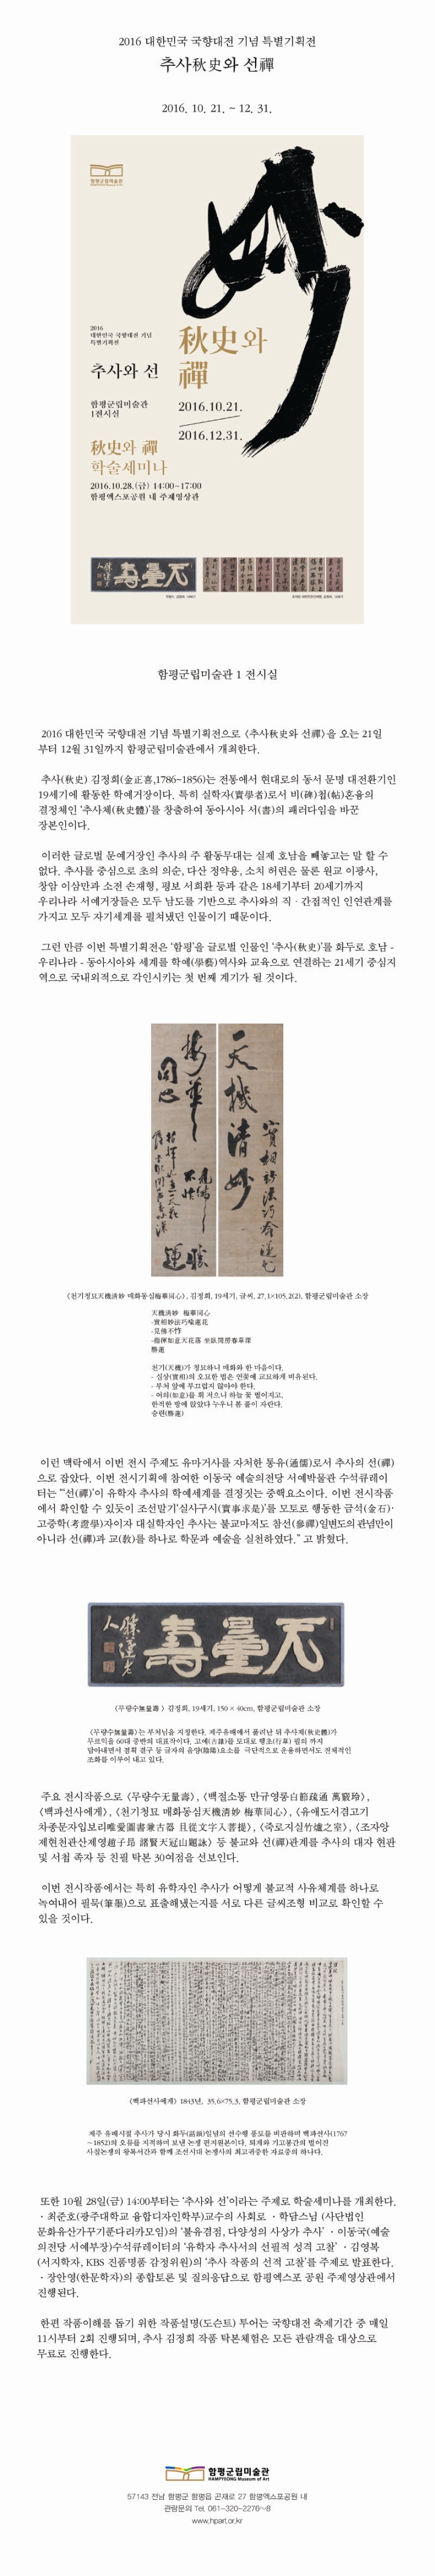 2016 대한민국 국향대전 기념 특별기획전
추사秋史와 선禪
2016. 10. 21. ~ 12. 31.
함평군립미술관
妙
2016
대한민국 국향대전 기념
특별기획전
추사와 선
함평군립미술관
1전시실
秋史와
禪
2016.10.21.
2016.12.31.
秋史와 禪
학술세미나
2016.10.28.(금) 14:00~17:00
함평엑스포공원 내 주제영상관
함평군립미술관 1 전시실
2016 대한민국 국향대전 기념 특별기획전으로 〈추사秋史와 선禪〉을 오는 21일
부터 12월 31일까지 함평군립미술관에서 개최한다.
추사(秋史) 김정희(金正喜,1786-1856)는 전통에서 현대로의 동서 문명 대전환기인
19세기에 활동한 학예거장이다. 특히 실학자(實學者)로서 비(碑)첩(帖)혼융의
결정체인 '추사체(秋史體)'를 창출하여 동아시아 서(書)의 패러다임을 바꾼
장본인이다.
이러한 글로벌 문예거장인 추사의 주 활동무대는 실제 호남을 빼놓고는 말 할 수
없다. 추사를 중심으로 초의 의순, 다산 정약용, 소치 허련은 물론 원교 이광사,
창암 이삼만과 소전 손재형, 평보 서희환 등과 같은 18세기부터 20세기까지
우리나라 서예거장들은 모두 남도를 기반으로 추사와의 직 · 간접적인 인연관계를
가지고 모두 자기세계를 펼쳐냈던 인물이기 때문이다.
그런 만큼 이번 특별기획전은 '함평'을 글로벌 인물인 '추사(秋史)'를 화두로 호남 -
우리나라 - 동아시아와 세계를 학예(學藝)역사와 교육으로 연결하는 21세기 중심지
역으로 국내외적으로 각인시키는 첫 번째 계기가 될 것이다.
〈천기청묘天機淸妙 매화동심梅華同心〉, 김정희, 19세기, 글씨, 27.1×105.2(2), 함평군립미술관 소장
天機淸妙 梅華同心
-實相妙法巧喩蓮花
-見佛不怍
-指揮如意天花落 坐臥閒房春草深
勝蓮
천기(天機)가 청묘하니 매화와 한 마음이다.
- 실상(實相)의 오묘한 법은 연꽃에 교묘하게 비유된다.
- 부처 앞에 부끄럽지 않아야 한다.
- 여의(如意)를 휘 저으니 하늘 꽃 떨어지고,
한적한 방에 앉았다 누우니 봄 풀이 자란다.
승련(勝蓮)
이런 맥락에서 이번 전시 주제도 유마거사를 자처한 통유(通儒)로서 추사의 선(禪)
으로 잡았다. 이번 전시기획에 참여한 이동국 예술의전당 서예박물관 수석큐레이
터는 "'선(禪)'이 유학자 추사의 학예세계를 결정짓는 중핵요소이다. 이번 전시작품
에서 확인할 수 있듯이 조선말기'실사구시(實事求是)'를 모토로 행동한 금석(金石)·
고증학(考證學)자이자 대실학자인 추사는 불교마저도 참선(參禪)일변도의 관념만이
아니라 선(禪)과 교(敎)를 하나로 학문과 예술을 실천하였다." 고 밝혔다.
〈무량수無量壽 〉 김정희, 19세기, 150 × 40cm, 함평군립미술관 소장
〈무량수無量壽〉는 부처님을 지칭한다. 제주유배에서 풀려난 뒤 추사체(秋史體)가
무르익을 60대 중반의 대표작이다. 고예(古隷)를 토대로 행초(行草) 필의 까지
담아내면서 점획 결구 등 글자의 음양(陰陽)요소를 극단적으로 운용하면서도 전체적인
조화를 이루어 내고 있다.
주요 전시작품으로 〈무량수无量壽〉, 〈백절소통 만규영롱百節疏通 萬竅玲〉,
〈백파선사에게〉, 〈천기청묘 매화동심天機淸妙 梅華同心〉, 〈유애도서겸고기
차종문자입보리唯愛圖書兼古器 且從文字入菩提〉, 〈죽로지실竹爐之室〉, 〈조자앙
제현천관산제영趙子昻 諸賢天冠山題詠〉 등 불교와 선(禪)관계를 추사의 대자 현판
및 서첩 족자 등 친필 탁본 30여점을 선보인다.
이번 전시작품에서는 특히 유학자인 추사가 어떻게 불교적 사유체계를 하나로
녹여내어 필묵(筆墨)으로 표출해냈는지를 서로 다른 글씨조형 비교로 확인할 수
있을 것이다.
〈백파선사에게〉 1843년, 35.6×75.3, 함평군립미술관 소장
제주 유배시절 추사가 당시 화두(話頭)일념의 선수행 풍토를 비판하며 백파선사(1767
~1852)의 오류를 지적하며 보낸 논쟁 편지원본이다. 퇴계와 기고봉간의 벌어진
사칠논쟁의 왕복서간과 함께 조선시대 논쟁사의 최고귀중한 자료중의 하나다.
또한 10월 28일(금) 14:00부터는 '추사와 선'이라는 주제로 학술세미나를 개최한다.
· 최준호(광주대학교 융합디자인학부)교수의 사회로 · 학담스님 (사단법인
문화유산가꾸기푼다리카모임)의 '불유겸점, 다양성의 사상가 추사' · 이동국(예술
의전당 서예부장)수석큐레이터의 '유학자 추사서의 선필적 성격 고찰' · 김영복
(서지학자, KBS 진품명품 감정위원)의 '추사 작품의 선적 고찰'를 주제로 발표한다.
· 장안영(한문학자)의 종합토론 및 질의응답으로 함평엑스포 공원 주제영상관에서
진행된다.
한편 작품이해를 돕기 위한 작품설명(도슨트) 투어는 국향대전 축제기간 중 매일
11시부터 2회 진행되며, 추사 김정희 작품 탁본체험은 모든 관람객을 대상으로
무료로 진행한다.
함평군립미술관
HAMPYEONG Museum of Art
57143 전남 함평군 함평읍 곤재로 27 함평엑스포공원 내
관람문의 Tel. 061-320-2276~8
www.hpart.or.kr